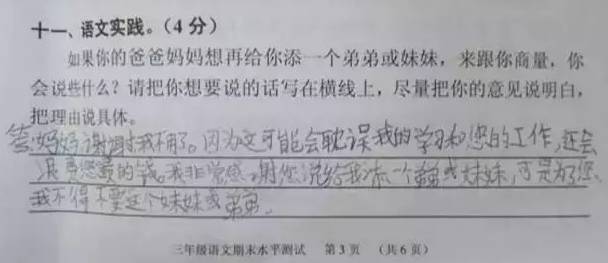 十一、语文实践。(4分)
如果你的爸爸妈妈想再给你添一个弟弟或妹妹，来跟你商量，你
会说些什么？请把你想要说的话写在横线上，尽量把你的意见说明白，
把理由说具体。
答:妈妈谢谢对我不用了。因为这可能会耽误我的学习和您的工作,还会
浪费您的钱。我非常感谢您说给我添一个弟弟或妹妹,可是为了您,
我不得不要这个妹妹或弟弟。
三年级语文期末水平测试 第3页 (共6页)